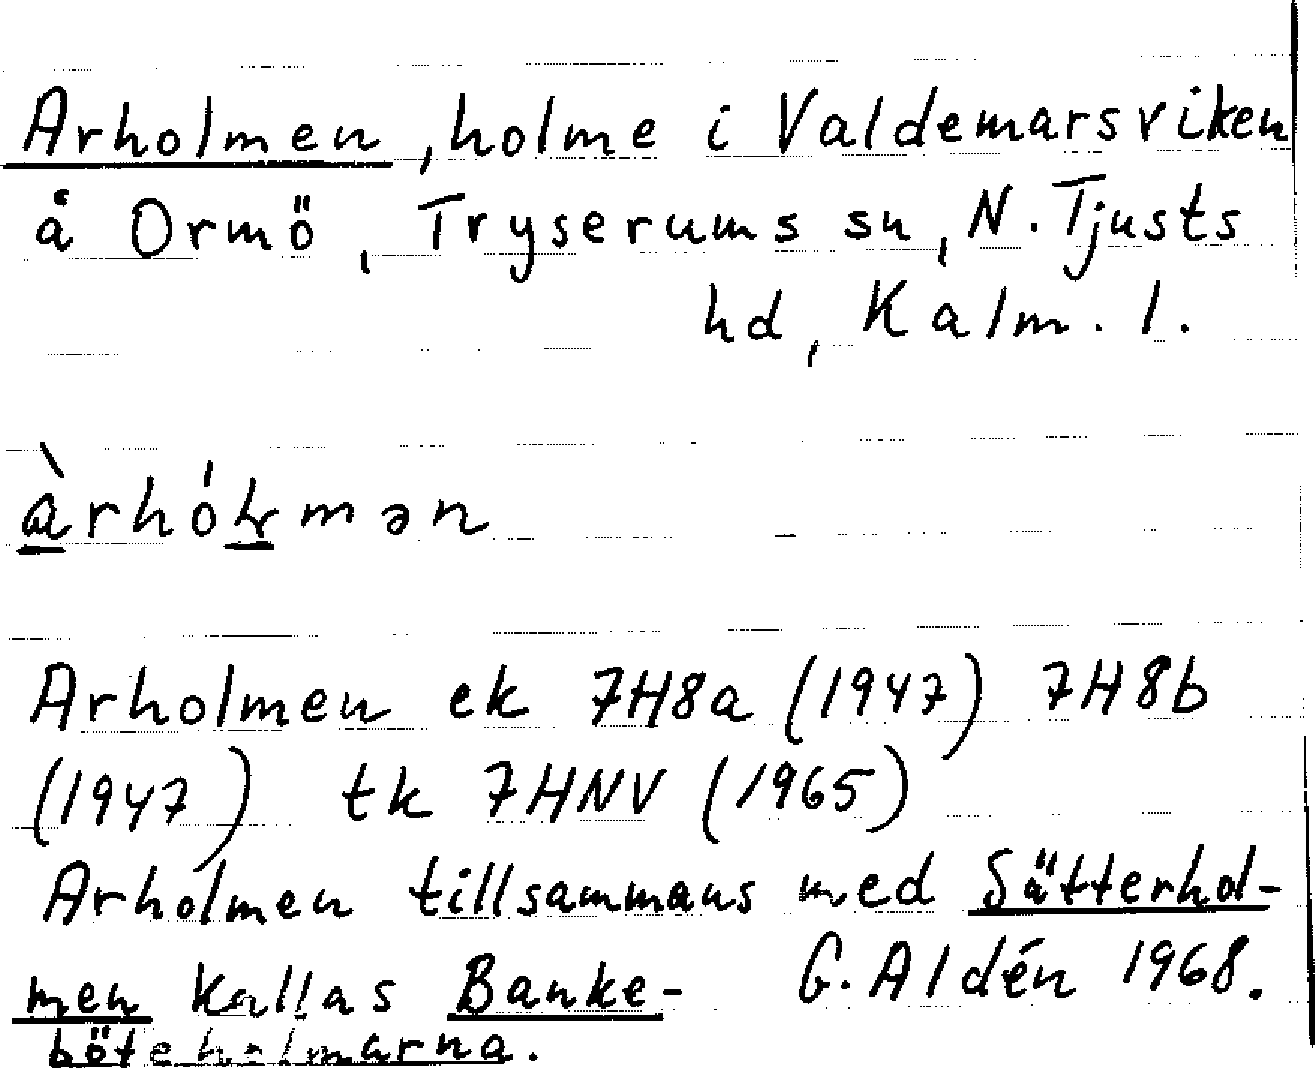 Arholmen, holme i Valdemarsviken
å Ormö, Tryserums sn, N. Tjusts
hd, Kalm. l.
àrhółmən
Arholmen ek 7H8a (1947) 7H8b
(1947) tk 7HNV (1965)
Arholmen tillsammans med Sätterhol-
men kallas Banke- G. Aldén 1968.
böteholmarna.